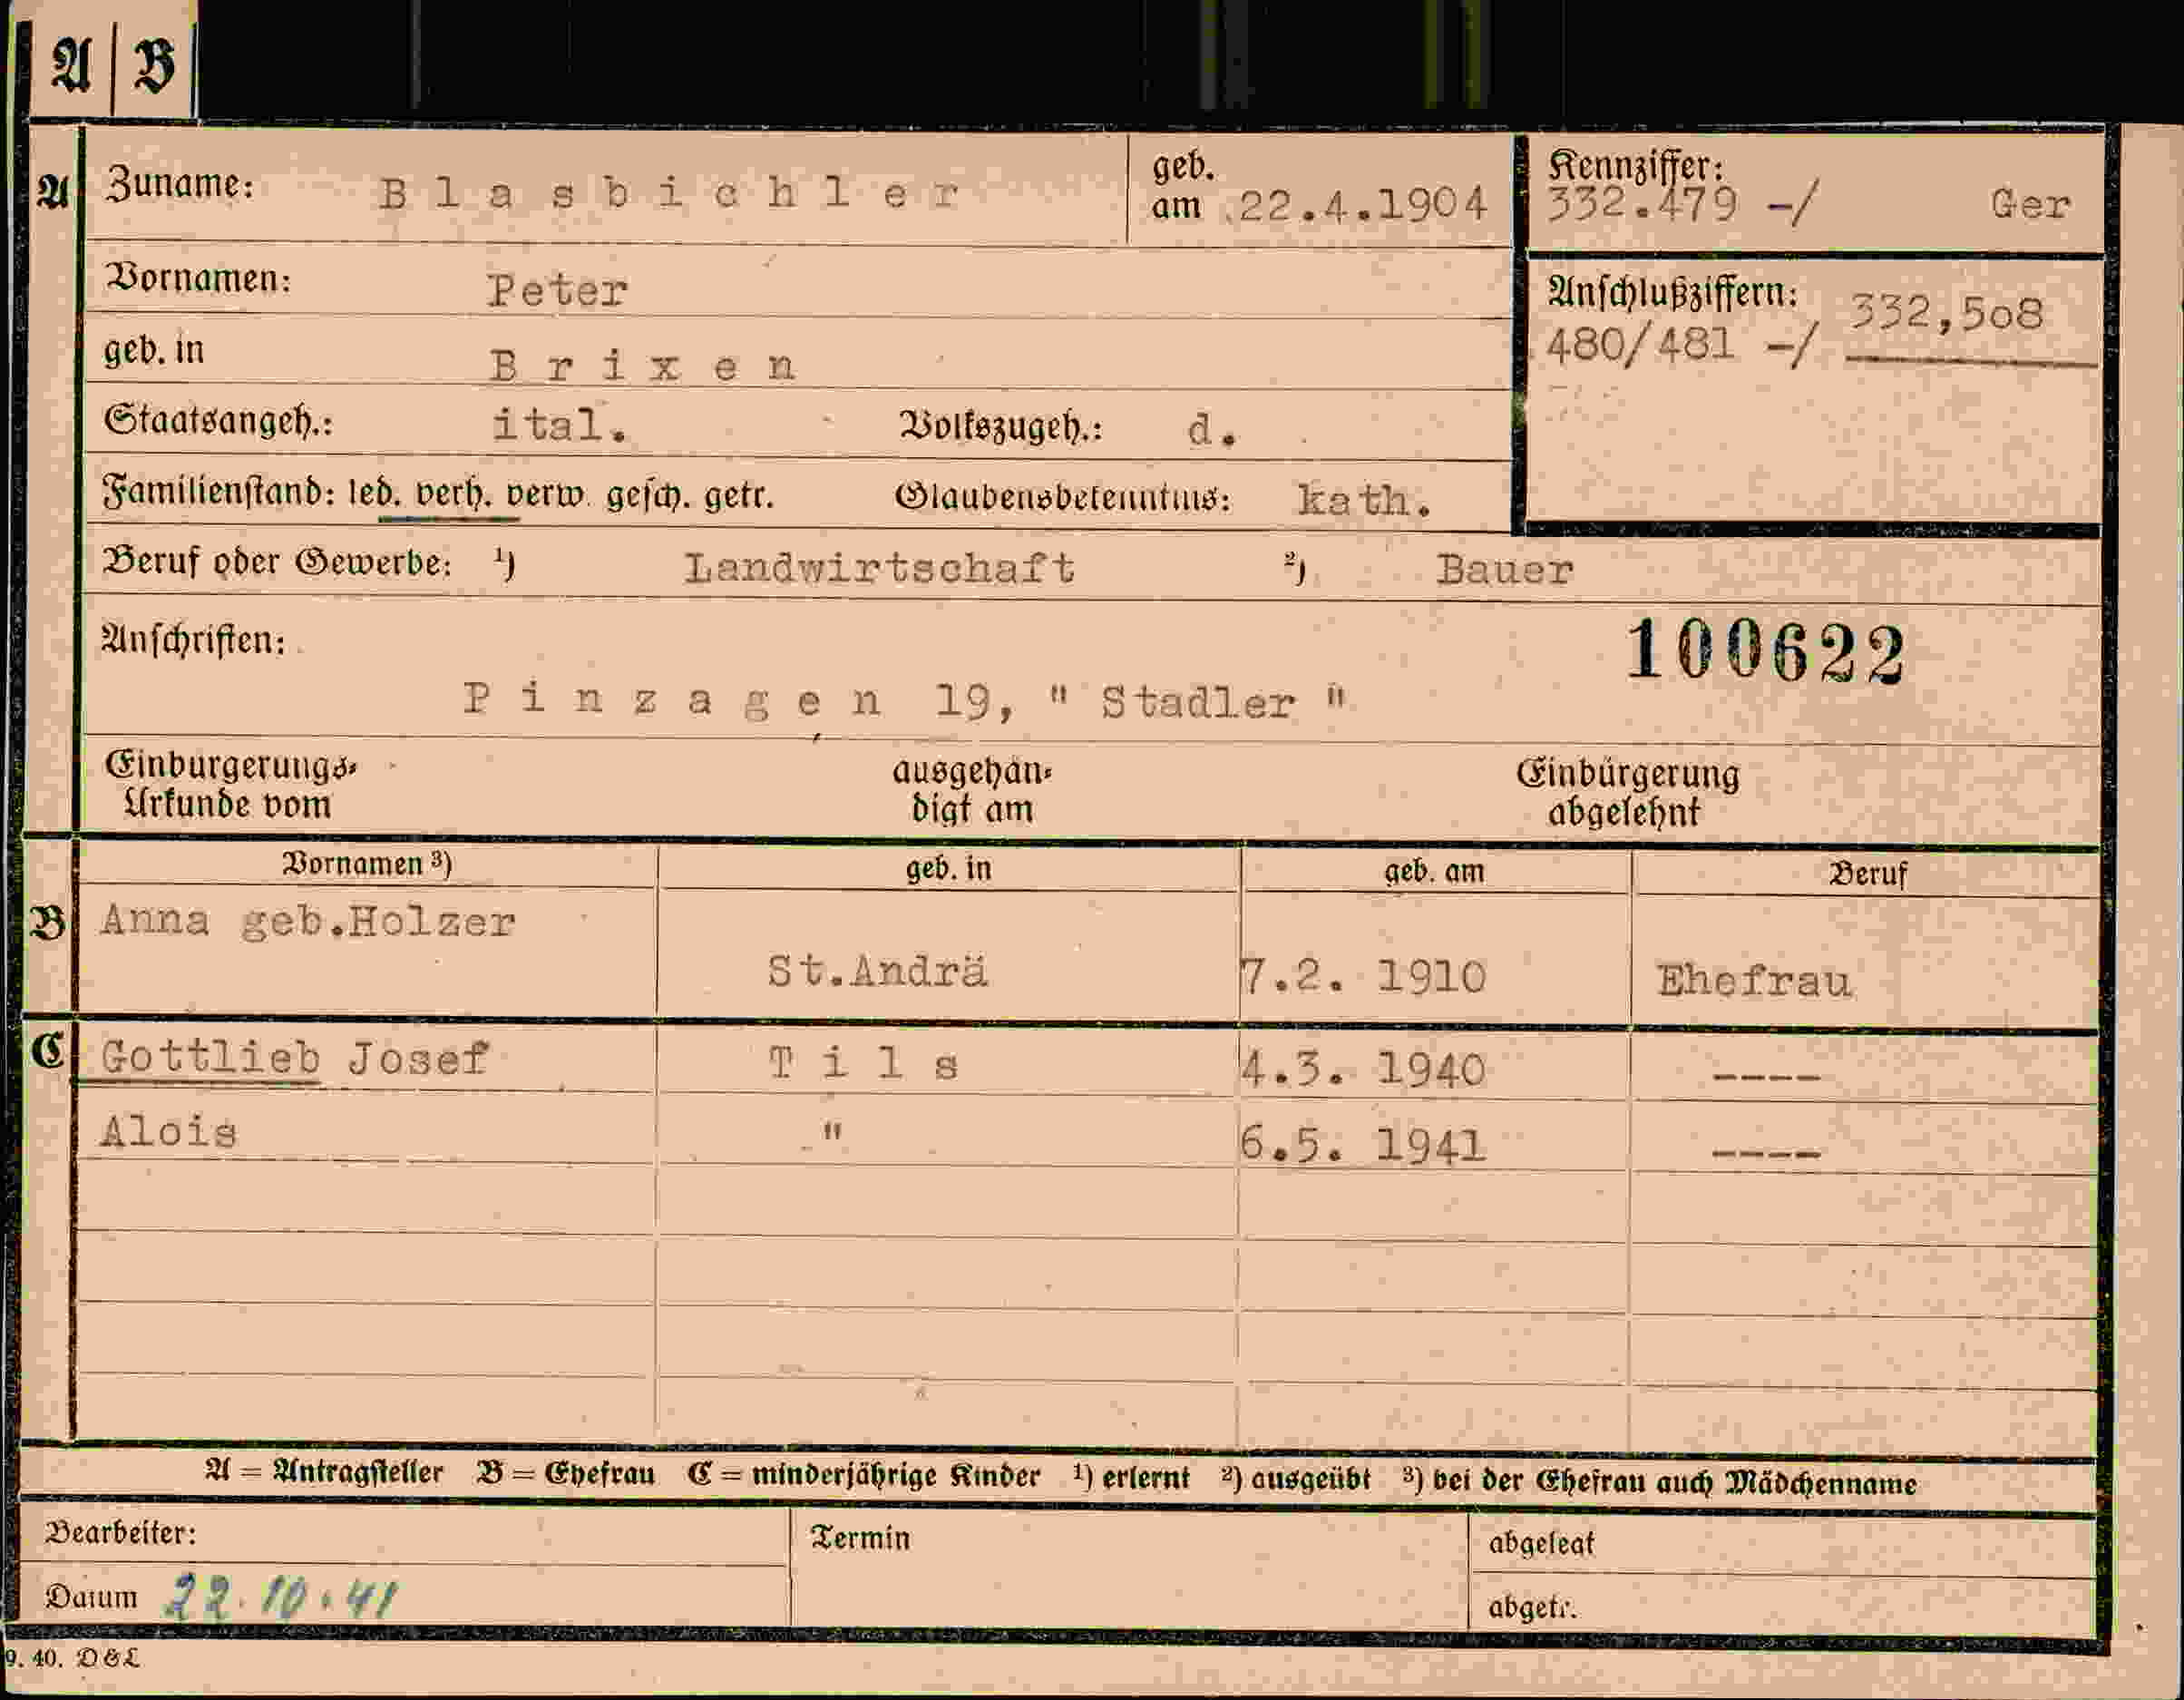 A | B
A Zuname: Blasbichler geb. am 22.4.1904 Kennziffer: 332.479 -/ Ger
Vornamen: Peter
Anschlußziffern: 332,5o8
480/481 -/
geb. in Brixen
Staatsangeh.: ital. Volkszugeh.: d.
Familienstand: led. verh. verw. gesch. getr. Glaubensbekenntnis: kath.
Beruf oder Gewerbe: ¹) Landwirtschaft ²) Bauer
Anschriften: 100622
Pinzagen 19, " Stadler "
Einbürgerungs- ausgehän- Einbürgerung
Urkunde vom digt am abgelehnt
Vornamen ³) geb. in geb. am Beruf
B Anna geb.Holzer
St.Andrä 7.2. 1910 Ehefrau
C Gottlieb Josef Tils 4.3. 1940 ----
Alois " 6.5. 1941 ----
A = Antragsteller B = Ehefrau C = minderjährige Kinder ¹) erlernt ²) ausgeübt ³) bei der Ehefrau auch Mädchenname
Bearbeiter: Termin abgelegt
Datum 22.10.41 abgetr.
9. 40. D&L